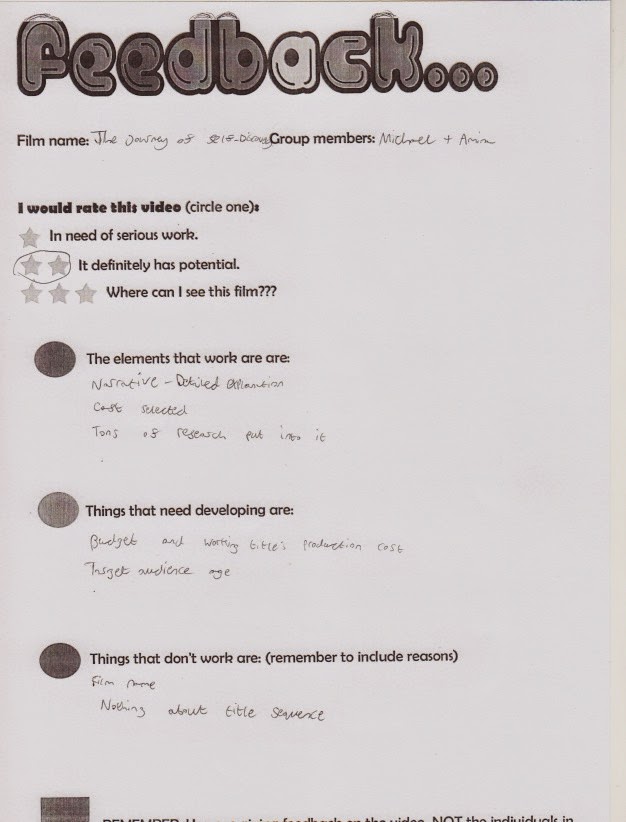 Feedback...
Film name: The Journey of Self-Discovery Group members: Michael + Amin
I would rate this video (circle one):
In need of serious work.
It definitely has potential.
Where can I see this film???
The elements that work are are:
Narrative - Detailed explanation
Cast selected
Tons of research put into it
Things that need developing are:
Budget and working title's production cost
Target audience age
Things that don't work are: (remember to include reasons)
Film name
Nothing about title sequence
REMEMBER feedback on the video, NOT the individuals in